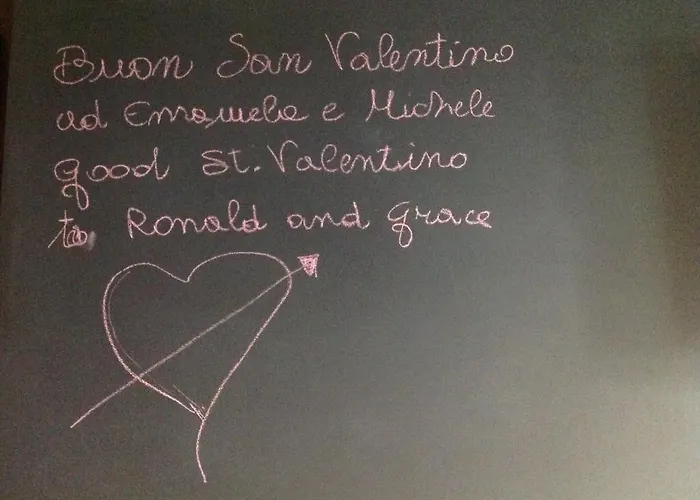 Buon San Valentino
ad Emanuela e Michele
good St. Valentino
to Ronald and Grace